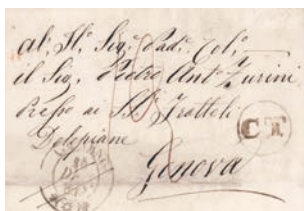 al, Sig. Pad. Col.
il Sig. Pietro Ant. Zurini
Presso ai SS. Fratelli
Delepiane
Genova
C T